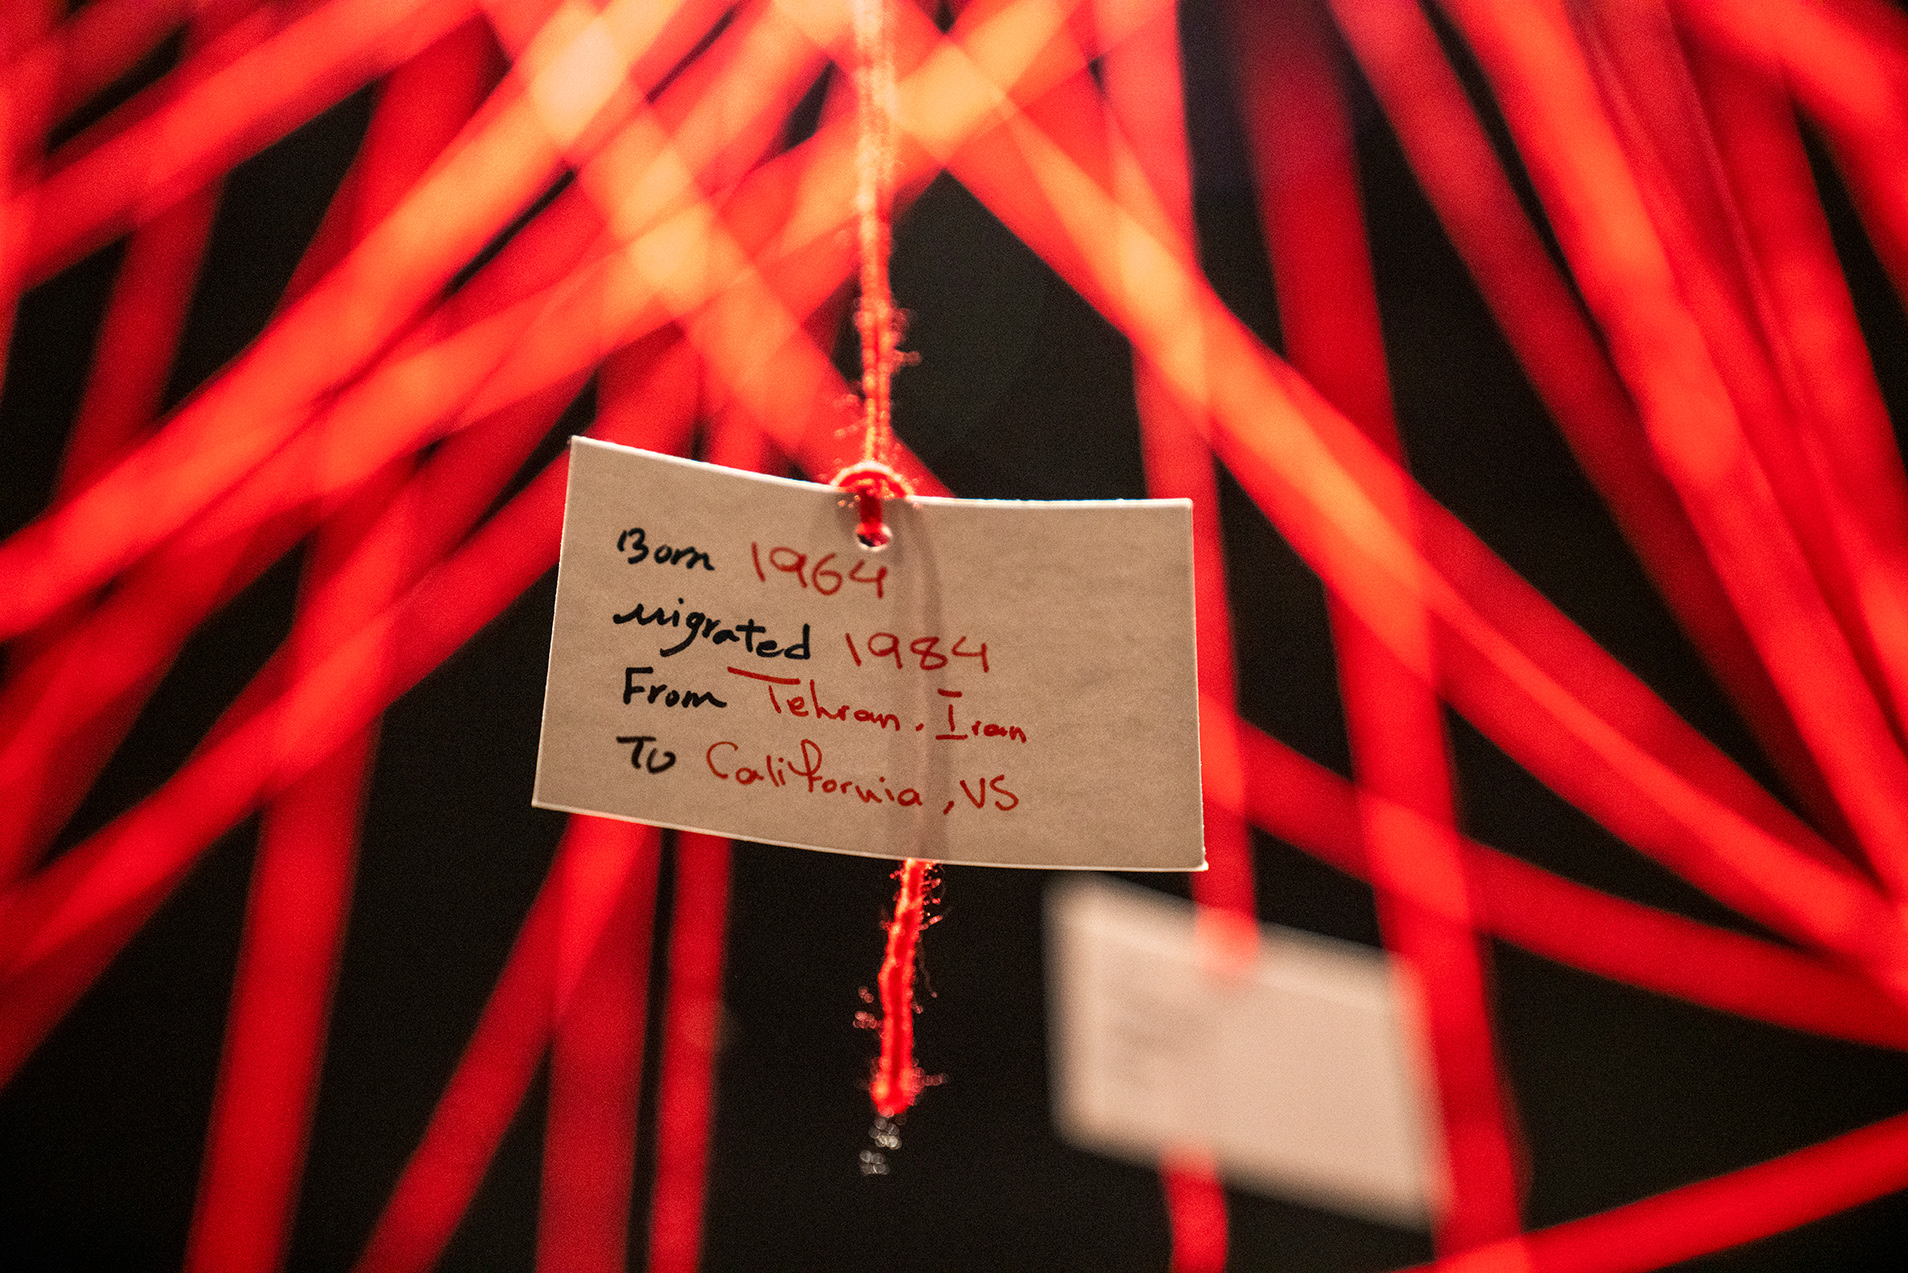 Born 1964
Migrated 1984
From Tehran, Iran
To California, US